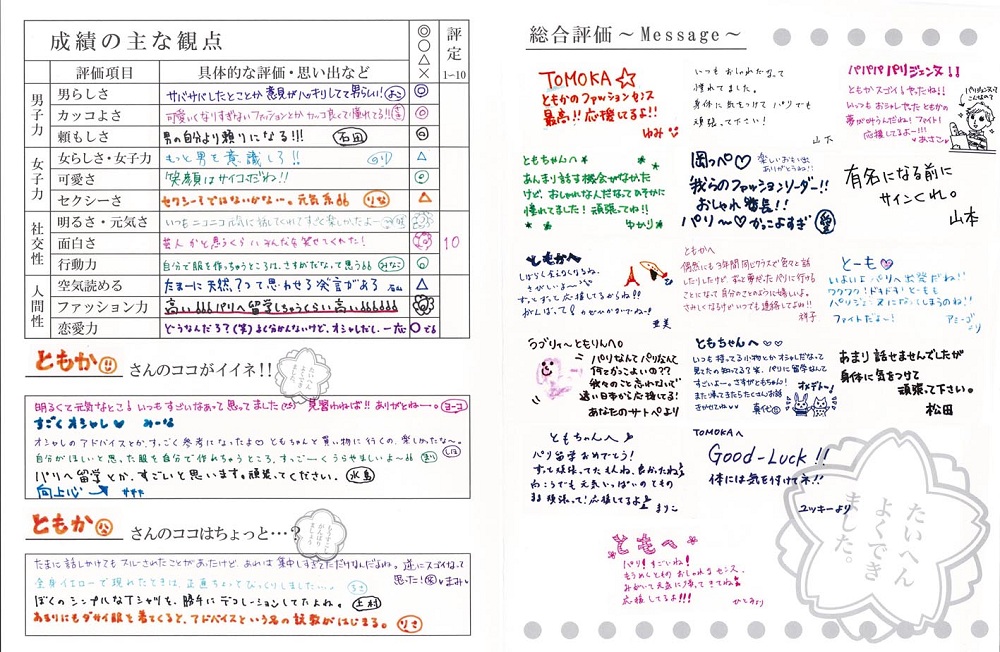 成績の主な観点
◎○△×
評定
1~10
評価項目
具体的な評価・思い出など
男子力
男らしさ
サバサバしたとことか意見がハッキリしてて男らしい!
◎
カッコよさ
可愛くなりすぎないファッションとかカッコ良くて憧れてる!!
◎
頼もしさ
男の自分より頼りになる!!! 石田
◎
女子力
女らしさ・女子力
もっと男を意識しろ!! のり
△
可愛さ
笑顔はサイコだね!!
○
セクシーさ
セクシーではないかな…。元気系 りな
△
社交性
明るさ・元気さ
いつもニコニコ元気に話してくれてすごく楽しかったよー
面白さ
芸人かと思うくらいみんなを笑せてくれた!
10
行動力
自分で服を作っちゃうところは、さすがだなって思う みなこ
◎
人間性
空気読める
たまーに天然?って思わせる発言がある
△
ファッション力
高い パリへ留学しちゃうくらい高い
恋愛力
どうなんだろ?(笑)よく分かんないけど、オシャレだし、一応○で
ともか
さんのココがイイネ!!
たいへん
よくでき
ました。
明るくて元気なところ いつもすごいなあって思ってました 見習わねば!! ありがとねー。 ヨーコ
すごくオシャレ♡ みーな
オシャレのアドバイスとか、すっごく参考になったよ♡ ともちゃんと買い物に行くの、楽しかったな~。
自分がほしいと思った服を自分で作れちゃうところ、すっごーくうらやましいよ~
パリへ留学とか、すごいと思います。頑張ってください。 水島
向上心
ともか
さんのココはちょっと…?
たまに話しかけてもスルーされたことがあったけど、あれは集中しすぎてただけなんだよね。逆にスゴイなって
思った!(笑) ♥まみ♥
全身イエローで現れたときは、正直ちょっとびっくりしました…。
ぼくのシンプルなTシャツを、勝手にデコレーションしてたよね。 上村
あまりにもダサイ服を着てくると、アドバイスという名の説教がはじまる。 りさ
総合評価~Message~
TOMOKA☆
ともかのファッションセンス
最高!! 応援してるよ!!
ゆみ
いつもおしゃれだなって
憧れてました。
身体に気をつけてパリでも
頑張って下さい!
山下
パパパパリジェンヌ!!
ともかスゴイよやったね!!
いつもおシャレだったともかの
夢が叶うんだね! ファイト!
応援してるよー!!!
あさこ
パリジェンヌって
こんなの?
ともちゃんへ
あんまり話す機会がなかった
けど、おしゃれなんだなってひそかに
憧れてました! 頑張ってね!!
ゆかり
岡っぺ♡ 楽しいおもい出
ありがとうね!!
我らのファッションリーダー!!
おしゃれ番長!!
パリ~♡かっこよすぎ
有名になる前に
サインくれ。
山本
ともかへ
しばらく会えなくなるね。
さびしいよ~
すっごくすっごく応援してるからね!!
がんばって!
亜美
ともかへ
偶然にも3年間同じクラスで色々と話
したりしたけど、ずっと夢だったパリに行ける
ことになって自分のことのように嬉しいよ。
さみしくなるけどいつでも連絡してよね!!
祥子
とーも♡
いよいよパリへ出発だね!!
ワクワク!ドキドキ!とーもも
パリジェンヌになってしまうのね!!
ファイトだよー!
アミーゴ
のり
うブリィ~ともりんへ。
パリなんてパリなんて
何てかっこよいの??
我々のこと忘れないで
遠い日本から応援してる!
あなたのサトペより
ともちゃんへ
いつも持ってる小物とかオシャレだなって
見てたの知ってる?笑。パリに留学なんて
すごいよー。さすがともちゃん!
また帰ってきたらたくさんお話
きかせてね♥♥ 真代
オメデトー!
あまり話せませんでしたが
身体に気をつけて
頑張って下さい。
松田
ともちんへ
パリ留学おめでとう!
すっごく頑張ってたもんね、良かったね
向こうでも元気いっぱいのともの
まま頑張って! 応援してるよ
まりこ
TOMOKAへ
Good-Luck!!
体には気を付けてネ!!
ユッキーより
ともへ
パリ!すごいね!
もうめっちゃともの おしゃれなセンス、
みがいて元気に帰ってきてね
応援してるよ!!!
ひとみより
たいへん
よくでき
ました。